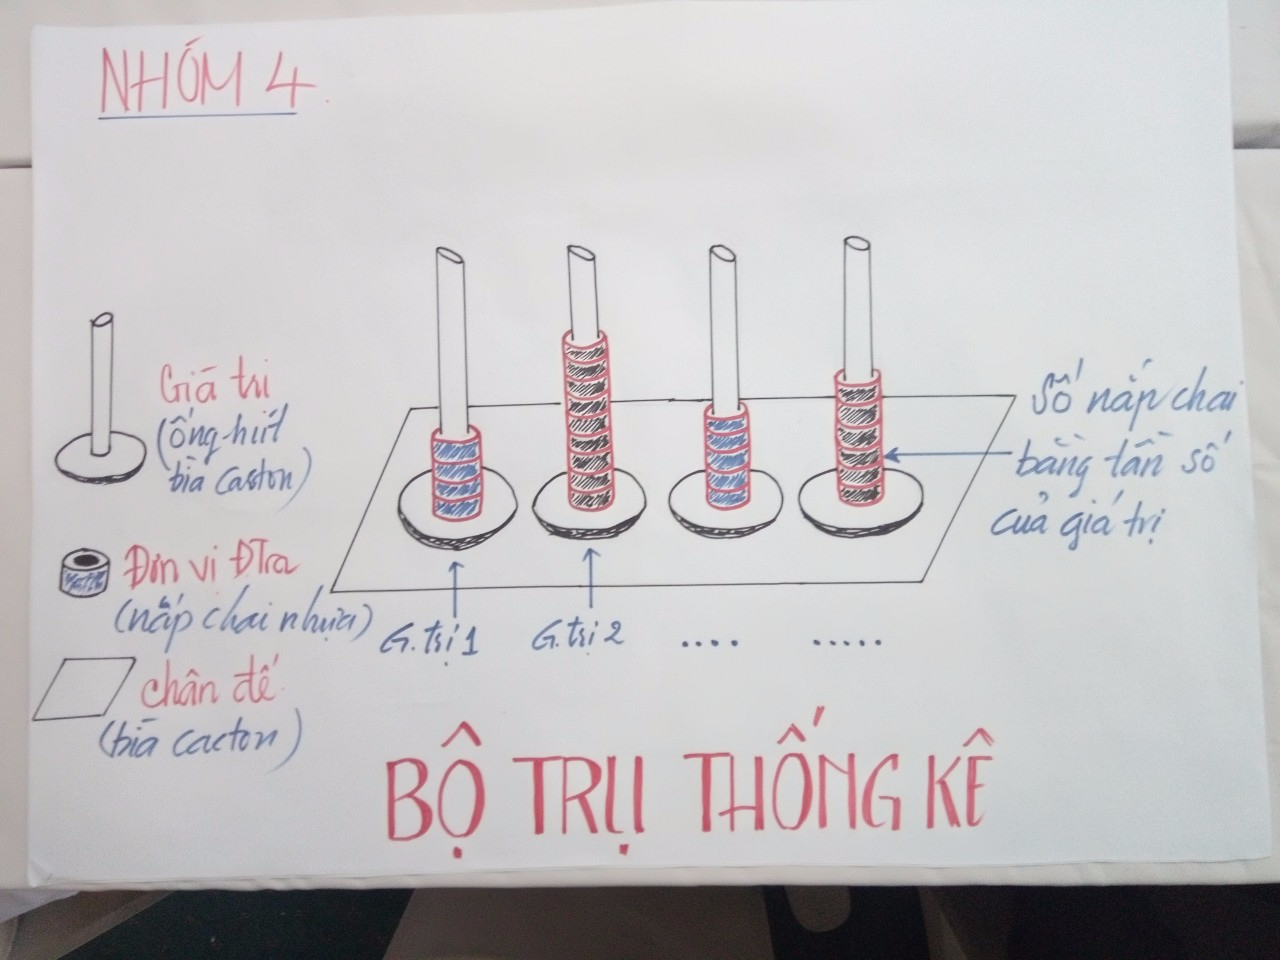 NHÓM 4
Giá trị
(ống hút
bìa caston)
Đơn vị ĐTra
(nắp chai nhựa)
chân đế
(bìa cacton)
Số nắp chai
bằng tần số
của giá trị
G.trị 1
G.trị 2
....
.....
BỘ TRỤ THỐNG KÊ